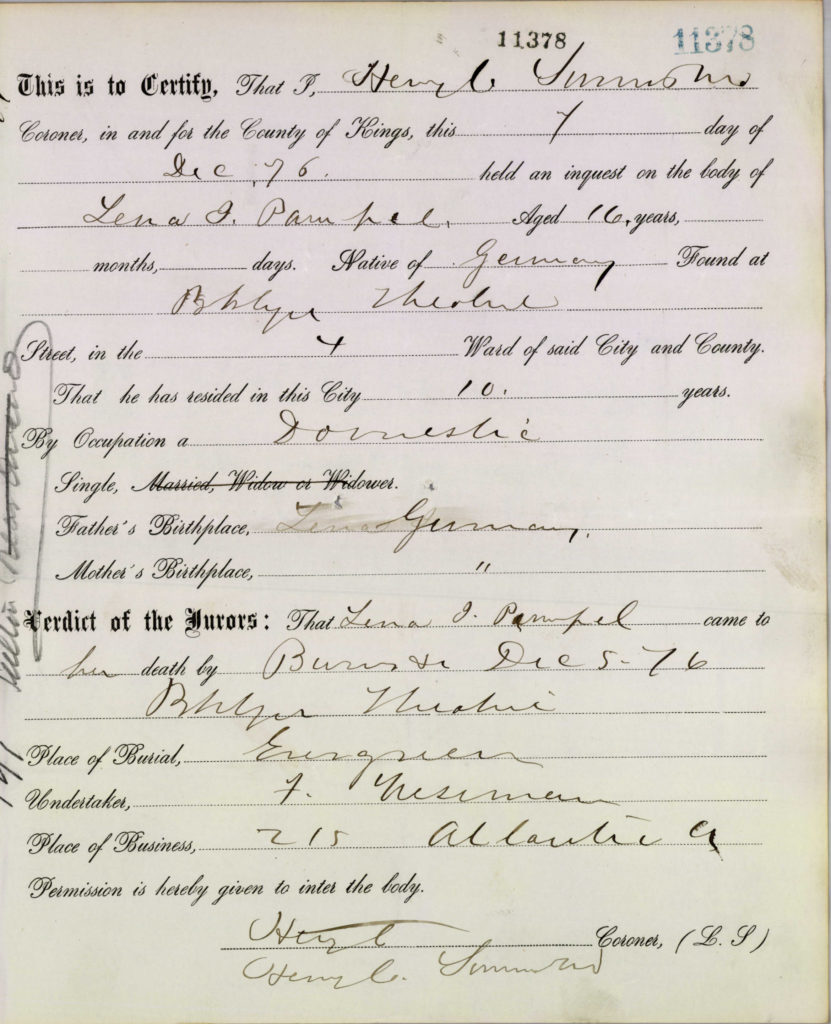 11378 11378
This is to Certify, That I, Henry C Simms MD
Coroner, in and for the County of Kings, this 7 day of
Dec, 76. held an inquest on the body of
Lena I. Pampel. Aged 16, years,
months, days. Native of Germany Found at
Bklyn Theatre
Street, in the 4 Ward of said City and County.
That he has resided in this City 10. years.
By Occupation a Domestic
Single, Married, Widow or Widower.
Father's Birthplace, Lena Germany.
Mother's Birthplace, "
Verdict of the Jurors: That Lena I. Pampel came to
her death by Burns &c Dec 5-76
Bklyn Theatre
Place of Burial, Evergreen
Undertaker, F.
Place of Business, 215 Atlantic A
Permission is hereby given to inter the body.
Henry C
Coroner, (L. S)
Henry C. Simms MD